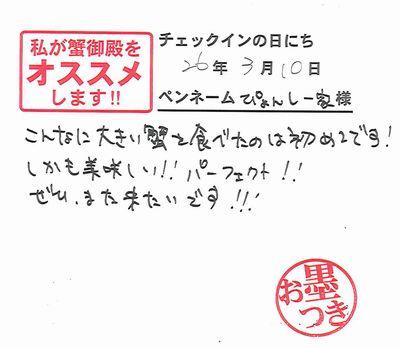 私が蟹御殿を
オススメ
します!!
チェックインの日にち
26年3月10日
ペンネームぴょんしー家様
こんなに大きい蟹を食べたのは初めてです!
しかも美味しい!! パーフェクト!!
ぜひ、また来たいです!!!
お墨つき